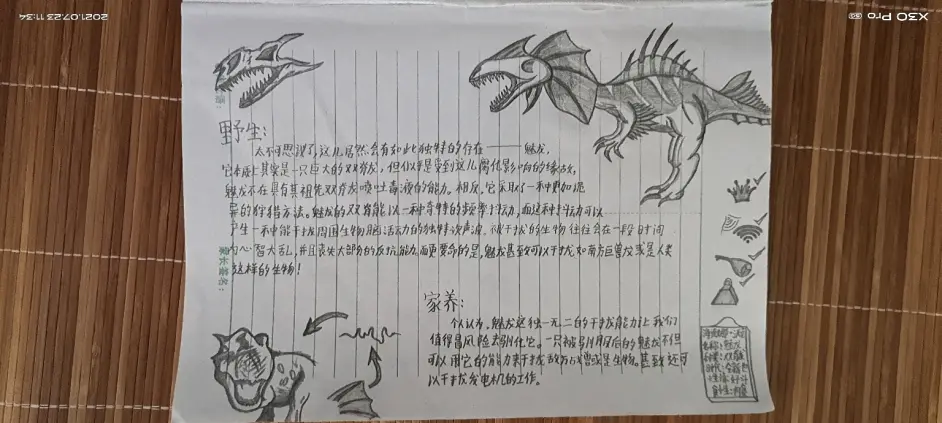 X30 Pro 5G
2021.07.23 11:34
野生:
太不可思议了,这儿居然会有如此独特的存在——魅龙,
它本质上其实是一只巨大的双脊龙,但似乎是受到这儿腐化影响的缘故,
魅龙不在具有其祖先双脊龙喷吐毒液的能力。相反,它采取了一种更加诡
异的狩猎方法。魅龙的双脊能以一种奇特的频率抖动,而这种抖动可以
产生一种能干扰周围生物脑活动力的独特次声波,被干扰的生物往往会在一段时间
内心智大乱,并且丧失大部分的反抗能力,而更要命的是,魅龙甚至可以干扰如南方巨兽龙或是人类
这样的生物!
家长签名:
家养:
个人认为,魅龙这独一无二的干扰能力让我们
值得冒风险去驯化它。一只被驯服后的魅龙不但
可以用它的能力来干扰敌方坐兽或是生物。甚至还可
以干扰发电机的工作。
名称:魅龙